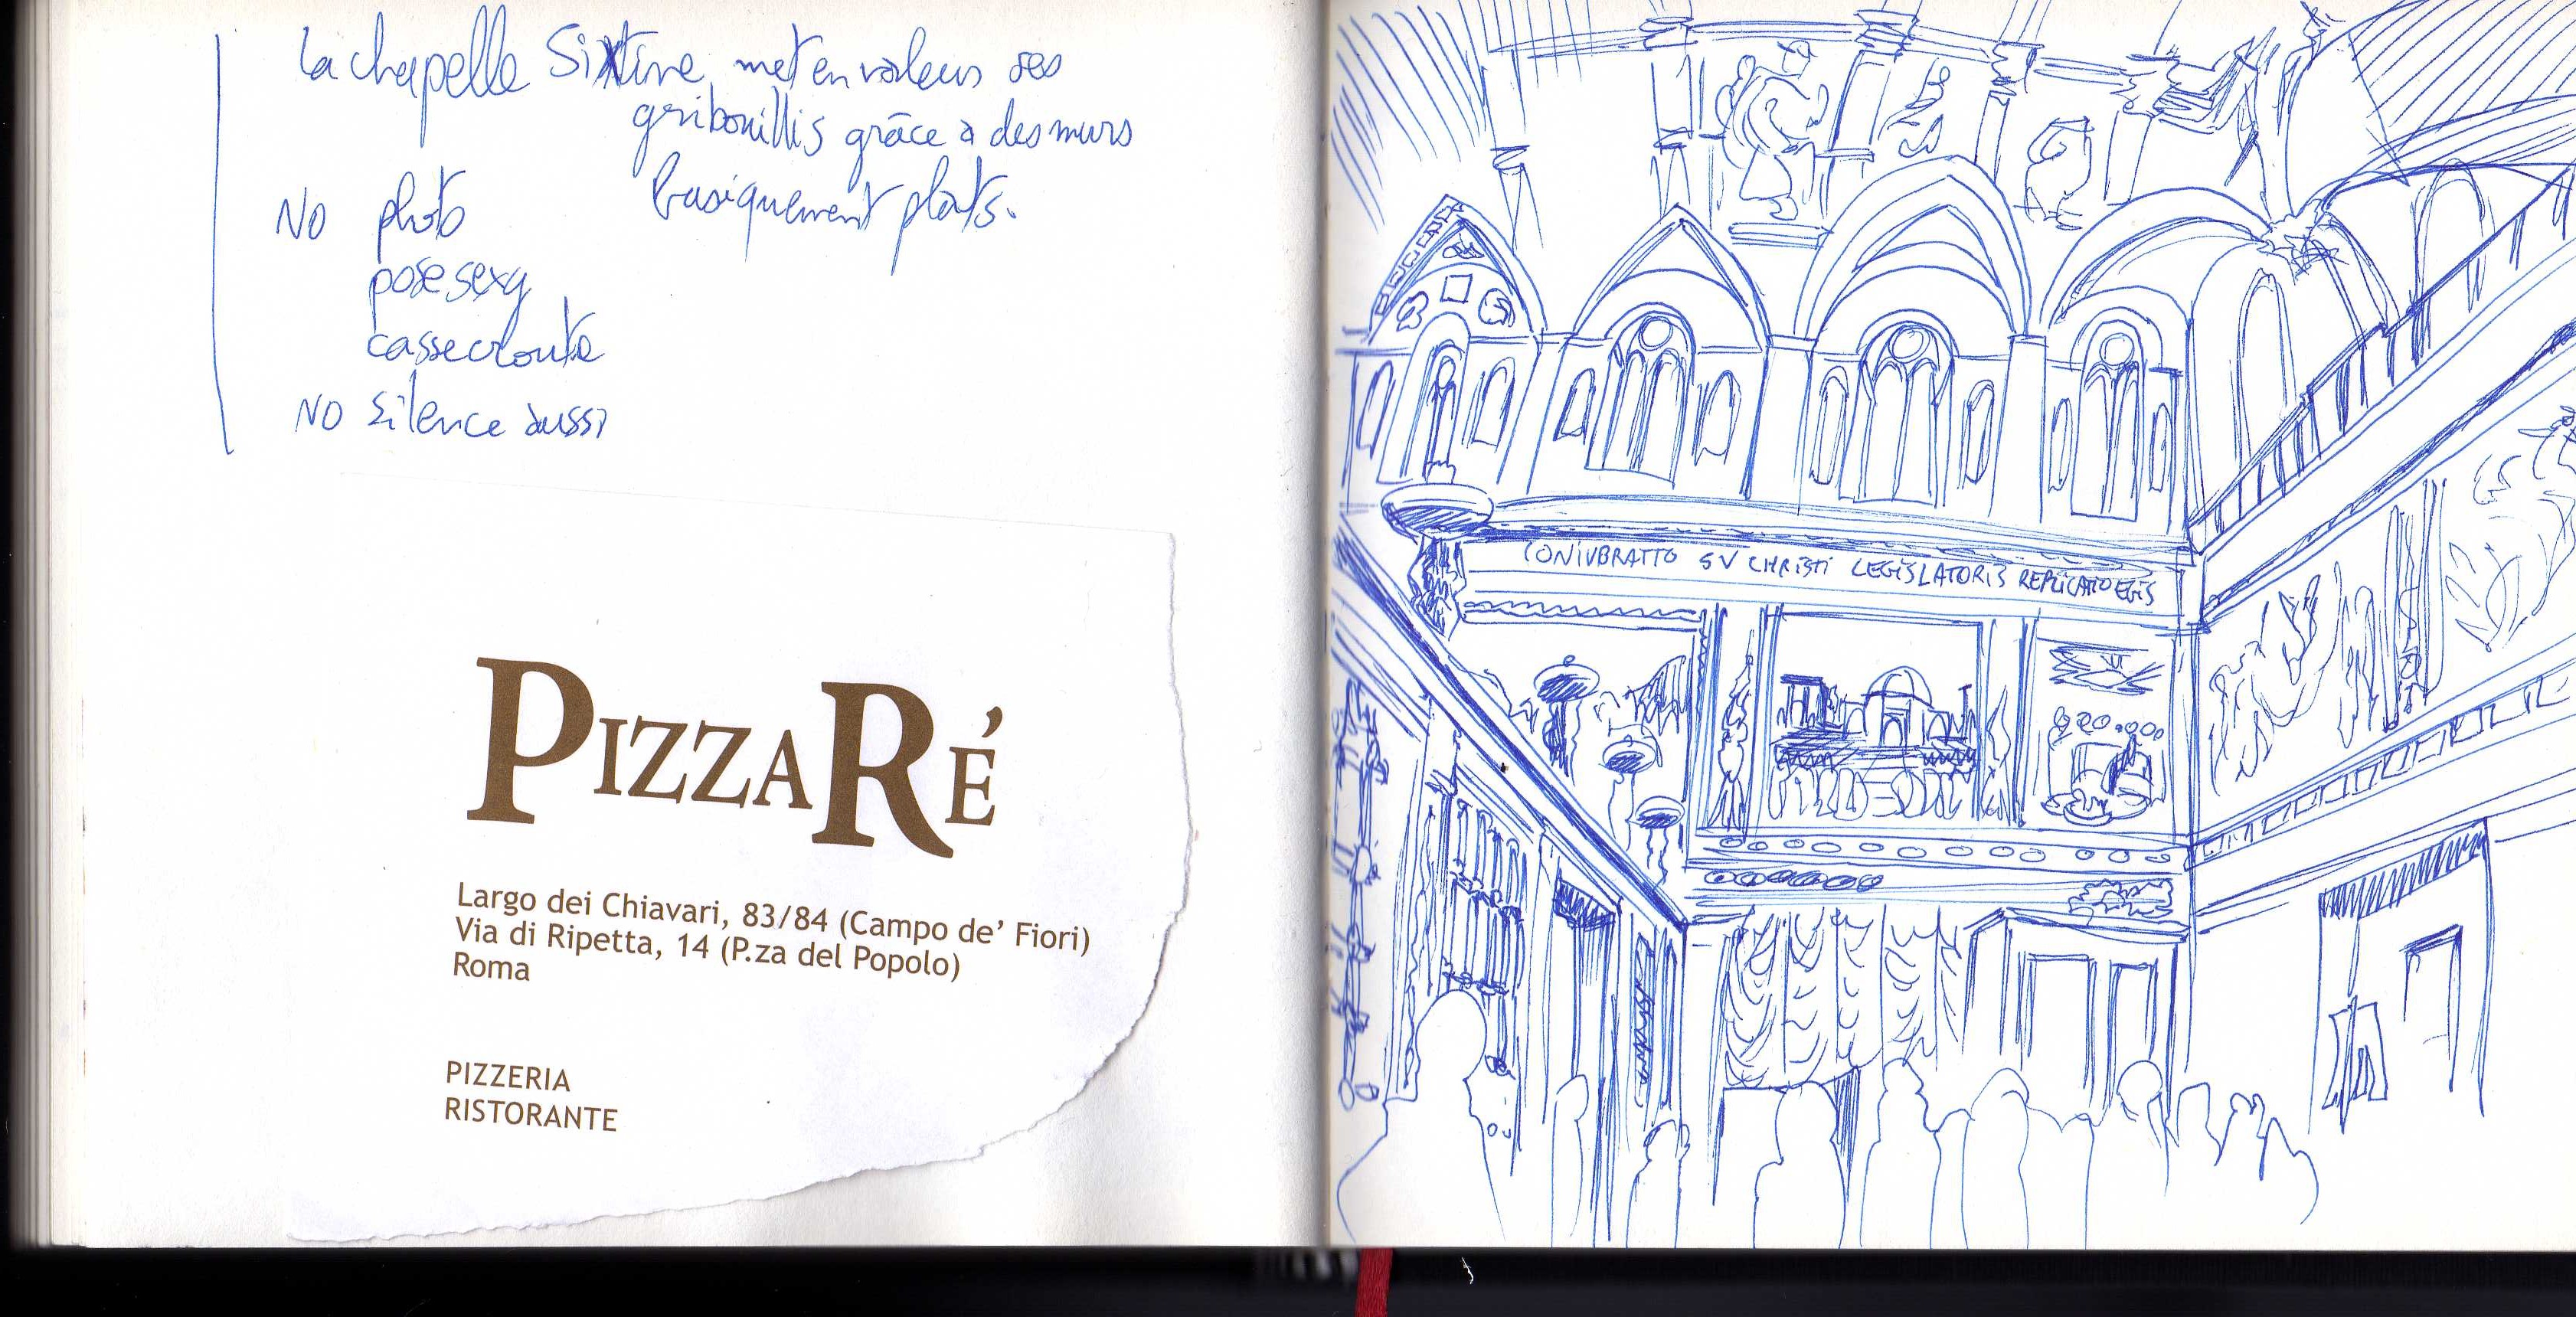 La chapelle Sixtine met en valeur ses
gribouillis grâce à des murs
basiquement plats.
NO photo
pose sexy
casse croute
NO silence aussi
PIZZARÉ
Largo dei Chiavari, 83/84 (Campo de' Fiori)
Via di Ripetta, 14 (P.za del Popolo)
Roma
PIZZERIA
RISTORANTE
CONIVBRATTO SV CHRISTI LEGISLATORIS REPLICATIO EGIS